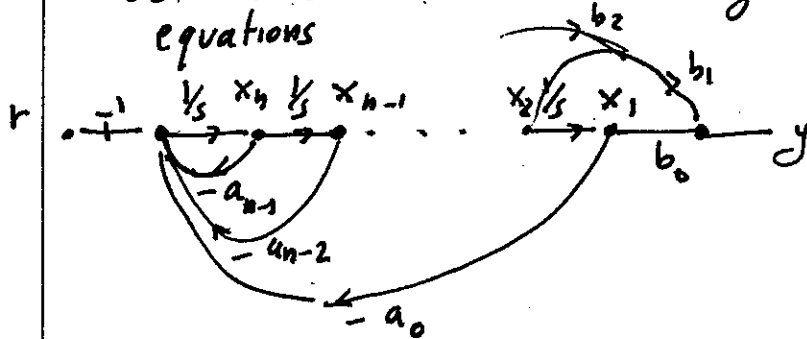 equations
b₂
b₁
r 1 1/s xₙ 1/s xₙ₋₁ . . . . x₂ 1/s x₁ b₀ y
- aₙ₋₁
- aₙ₋₂
- a₀